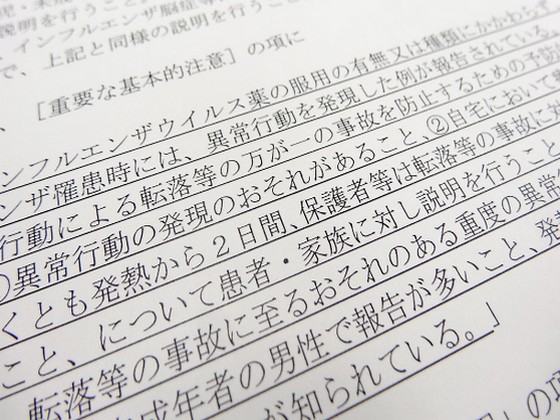 説明を行うこと
インフルエンザ脳症等
で、上記と同様の説明を行うこ
[重要な基本的注意]の項に
ンフルエンザウイルス薬の服用の有無又は種類にかかわらず
ンザ罹患時には、異常行動を発現した例が報告されている。
行動による転落等の万が一の事故を防止するための予防
異常行動の発現のおそれがあること、②自宅において
くとも発熱から2日間、保護者等は転落等の事故に
こと、について患者・家族に対し説明を行うこと
転落等の事故に至るおそれのある重度の異常
成年者の男性で報告が多いこと、発
が知られている。」